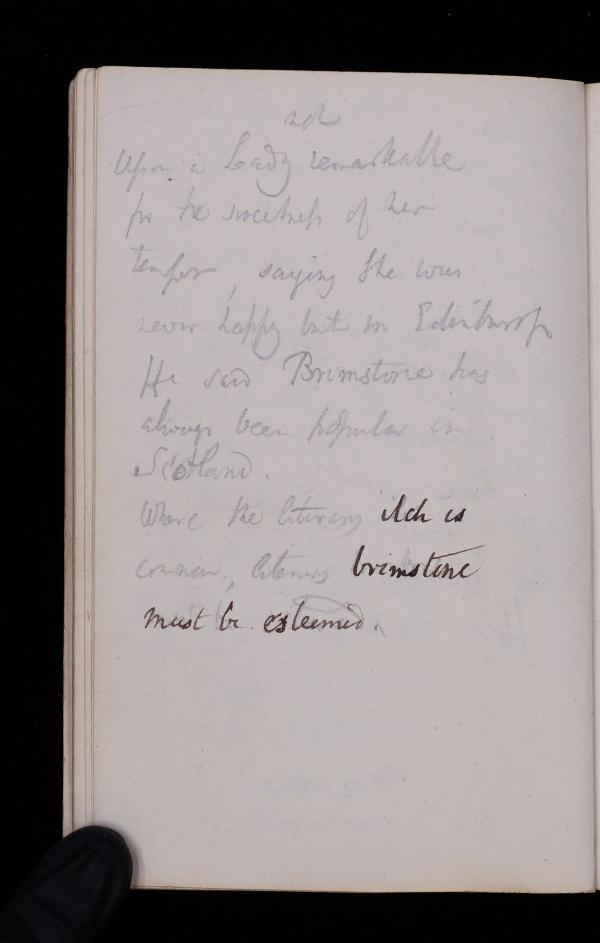 Upon a Lady remarkable
for the sweetness of her
temper, saying she was
never happy but in Edinburgh
He said Brimstone has
always been popular in
Scotland.
Where the literary itch is
common, literary brimstone
must be esteemed.